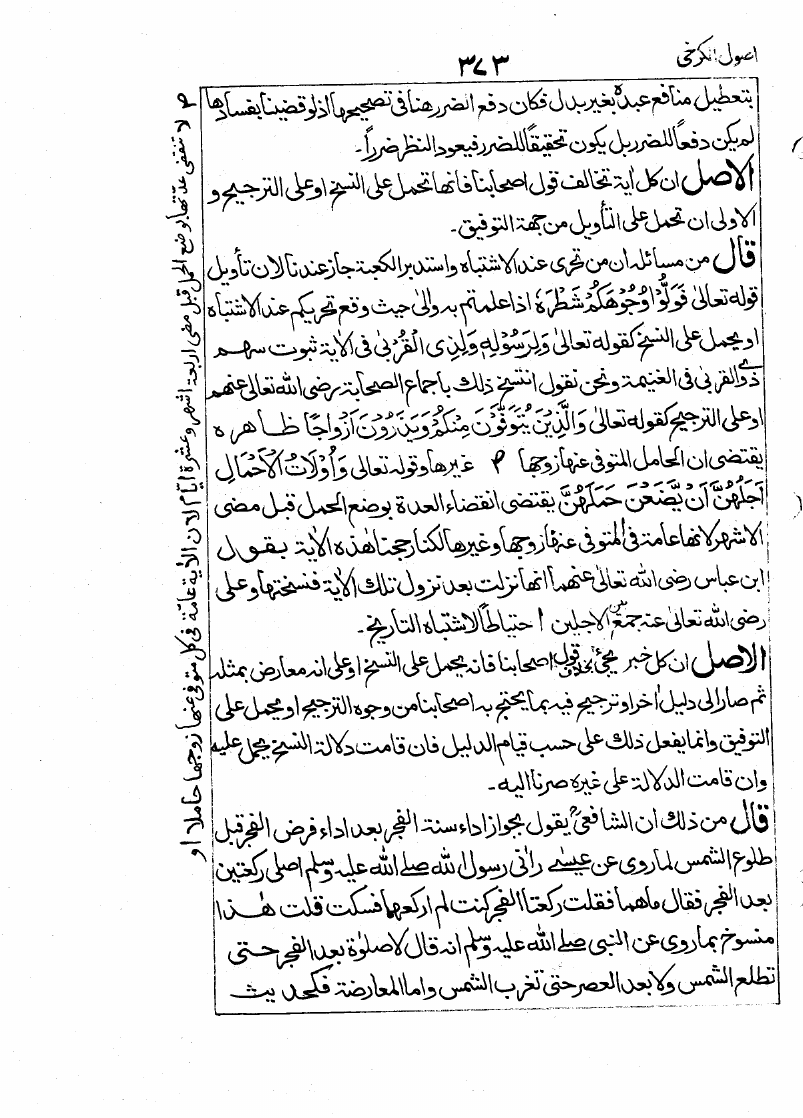 اصول الکرخی
۳۷۳
بتعطیل منافع عبده بغیر بدل فکان دفع الضرر هنا فی تصحیحها اذ لو قضینا بفسادها
لم یکن دفعاً للضرر بل یکون تحقیقاً للضرر فیعود النظر ضرراً۔
الاصل ان کل اٰیة تخالف قول اصحابنا فانها تحمل علی النسخ او علی الترجیح و
الاولی ان تحمل علی التأویل من جهة التوفیق۔
قال من مسائله ان من تحری عند الاشتباه واستدبر الکعبة جاز عندنا لان تأویل
قوله تعالیٰ فَوَلُّوْا وُجُوْهَكُمْ شَطْرَهٗ اذا علمتم به والیٰ حیث وقع تحریکم عند الاشتباه
او یحمل علی النسخ کقوله تعالیٰ وَلِرَسُوْلِهٖ وَلِذِی الْقُرْبٰی فی الاٰیة ثبوت سهم
ذوی القربٰی فی الغنیمة ونحن نقول انتسخ ذلك باجماع الصحابة رضی الله تعالیٰ عنهم
او علی الترجیح کقوله تعالیٰ وَالَّذِیْنَ یُتَوَفَّوْنَ مِنْکُمْ وَیَذَرُوْنَ اَزْوَاجًا ظاهره
یقتضی ان الحامل المتوفی عنها زوجها ۲ غیرها وقوله تعالی وَاُوْلَاتُ الْاَحْمَالِ
اَجَلُهُنَّ اَنْ یَّضَعْنَ حَمْلَهُنَّ یقتضی انقضاء العدة بوضع الحمل قبل مضی
الاشهر لانها عامة فی المتوفی عنها زوجها وغیرها لکنا رجحنا هٰذه الاٰیة بقول
ابن عباس رضی الله تعالیٰ عنهما انها نزلت بعد نزول تلك الاٰیة فنسختها وعلی
رضی الله تعالیٰ عنه جمع بین الاجلین احتیاطاً لاشتباه التاریخ۔
الاصل ان کل خبر یجیٔ بخلاف قول اصحابنا فانه یحمل علی النسخ او علی انه معارض بمثله
ثم صار الی دلیل اٰخر او ترجیح فیه بما یحتج به اصحابنا من وجوه الترجیح او یحمل علی
التوفیق وانما یفعل ذلك علی حسب قیام الدلیل فان قامت دلالة النسخ یحمل علیه
وان قامت الدلالة علی غیره صرنا الیه۔
قال من ذلك ان الشافعیؒ یقول بجواز اداء سنة الفجر بعد اداء فرض الفجر قبل
طلوع الشمس لما روی عن عیسٰے راٰنی رسول الله صلے الله علیه وسلم اصلی رکعتین
بعد الفجر فقال ما هما فقلت رکعتا الفجر کنت لم ارکعهما فسکت قلت هٰذا
منسوخ بما روی عن النبی صلے الله علیه وسلم انه قال لا صلوٰة بعد الفجر حتی
تطلع الشمس ولا بعد العصر حتی تغرب الشمس واما المعارضة فکحدیث
۲ لا تنقضی عدتها بوضع الحمل قبل مضی اربعة اشهر وعشرة ایام لان الاٰیة عامة فی کل متوفی عنها زوجها حاملا او